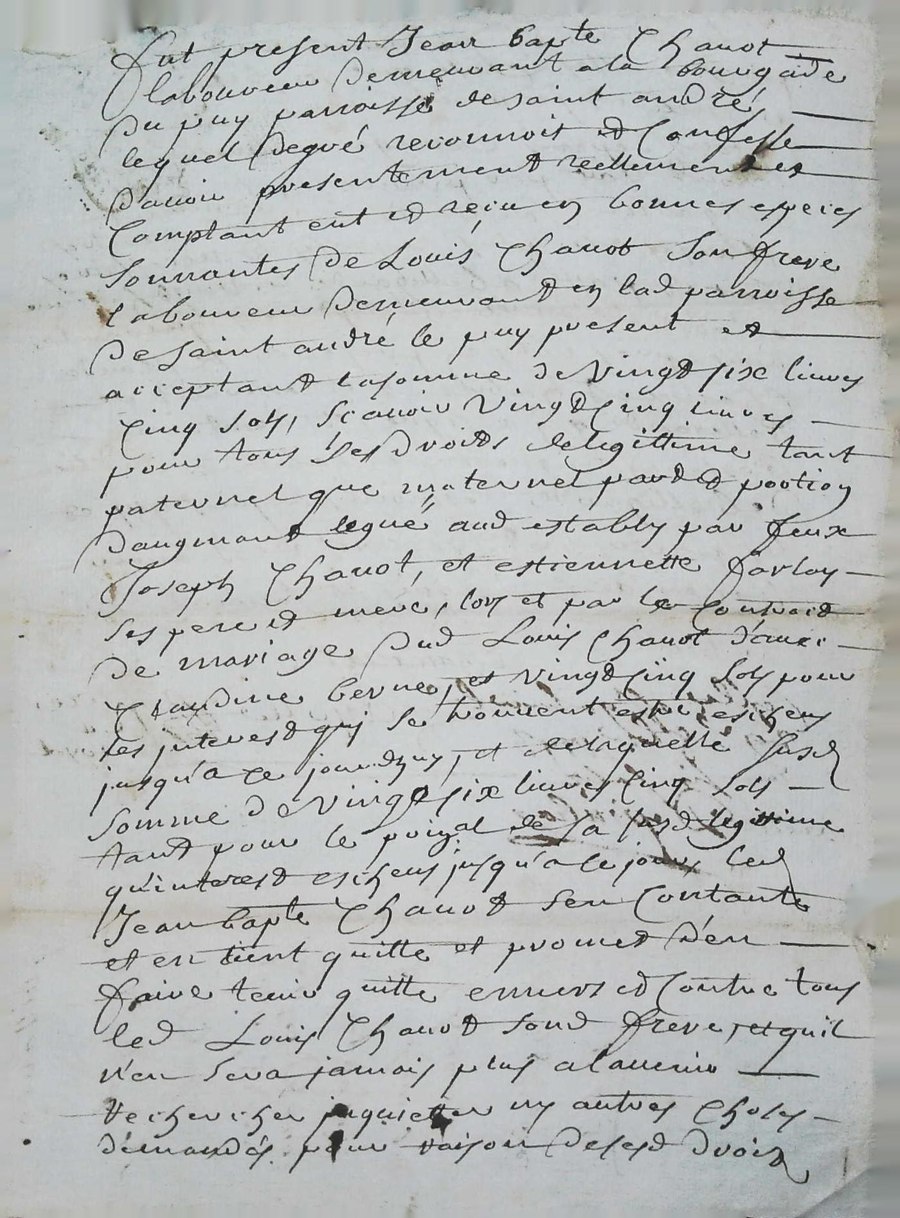 fut present Jean bapte Chavot
laboureur demeurant a la bourgade
du puy parroisse de saint andré
lequel degré reconnoit et Confesse
d'avoir presentement reellement et
Comptant eut et reçu en bonnes especes
sonnantes de Louis Chavot son frere
laboureur demeurant en lad parroisse
de saint andré le puy present et
acceptant la somme de Vingt six livres
Cinq sols, scavoir Vingt Cinq livres
pour tous ses droits de legittime tant
paternel que maternel part et portion
daugmant legué aud estably par feux
Joseph Chavot, et estiennette farlay
ses pere et mere, lors et par le Contract
de mariage dud Louis Chavot d'avec
Claudine berne, et vingt Cinq sols pour
les interest qui se trouvent estre escheus
jusqu'a ce jourdhuy, et de laquelle susd
somme de Vingt six livres Cinq sols
tant pour le pinpal de sa susd legittime
qu'interest escheus jusqu'a ce jour, led
Jean bapte Chavot s'en Contante
et en tient quitte et promet d'en
faire tenir quitte envers et Contre tous
led Louis Chavot sond frere, et quil
n'en sera jamais plus a lavenir
rechercher inquietter ny autres Choses
demandés pour raison desesd droits